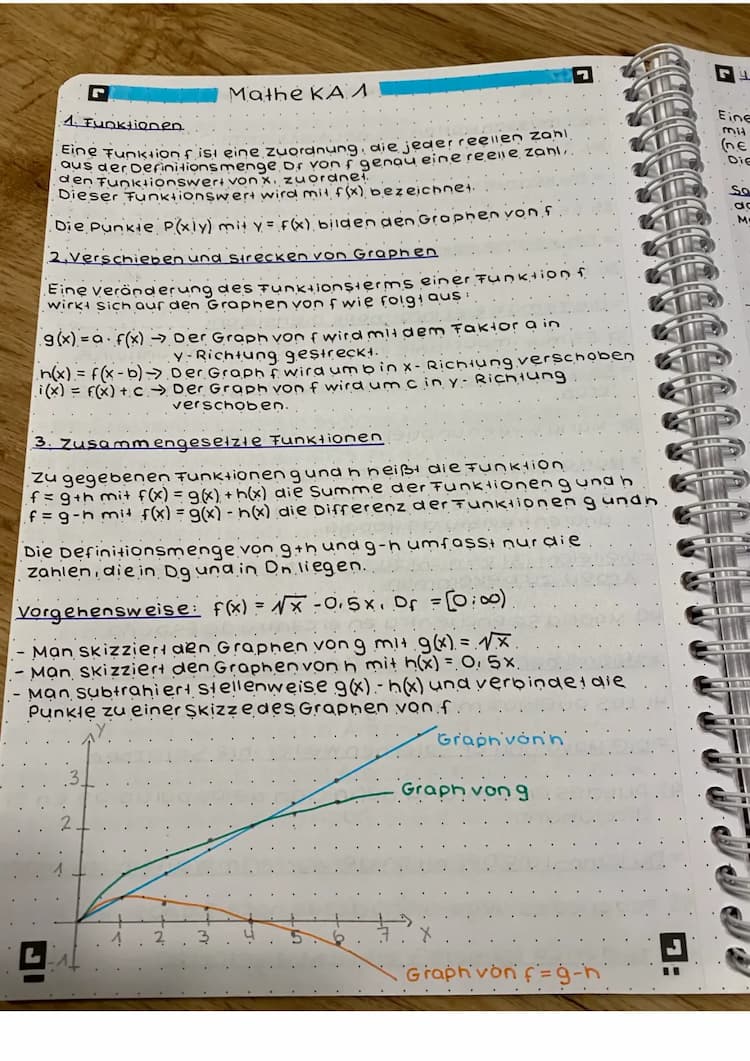 Mathe KA 1
1. Funktionen
Eine Funktion f ist eine Zuordnung, die jeder reellen Zahl
aus der Definitionsmenge Df von f genau eine reelle Zahl,
den Funktionswert von x, zuordnet.
Dieser Funktionswert wird mit f(x) bezeichnet.
Die Punkte P(x|y) mit y = f(x) bilden den Graphen von f
2. Verschieben und Strecken von Graphen
Eine Veränderung des Funktionsterms einer Funktion f
wirkt sich auf den Graphen von f wie folgt aus:
g(x) = a · f(x) → Der Graph von f wird mit dem Faktor a in
y-Richtung gestreckt.
h(x) = f(x-b) → Der Graph f wird um b in x-Richtung verschoben
i(x) = f(x) + c → Der Graph von f wird um c in y-Richtung
verschoben.
3. Zusammengesetzte Funktionen
Zu gegebenen Funktionen g und h heißt die Funktion
f = g+h mit f(x) = g(x) + h(x) die Summe der Funktionen g und h
f = g-h mit f(x) = g(x) - h(x) die Differenz der Funktionen g und h
Die Definitionsmenge von g+h und g-h umfasst nur die
Zahlen, die in Dg und in Dh liegen.
Vorgehensweise: f(x) = √x - 0,5x, Df = [0;∞)
- Man skizziert den Graphen von g mit g(x) = √x.
- Man skizziert den Graphen von h mit h(x) = 0,5x.
- Man subtrahiert stellenweise g(x) - h(x) und verbindet die
Punkte zu einer Skizze des Graphen von f
y
Graph von h
3
Graph von g
2
1
1 2 3 4 5 6 7 x
-1
Graph von f = g-h
Eine
mit
Die